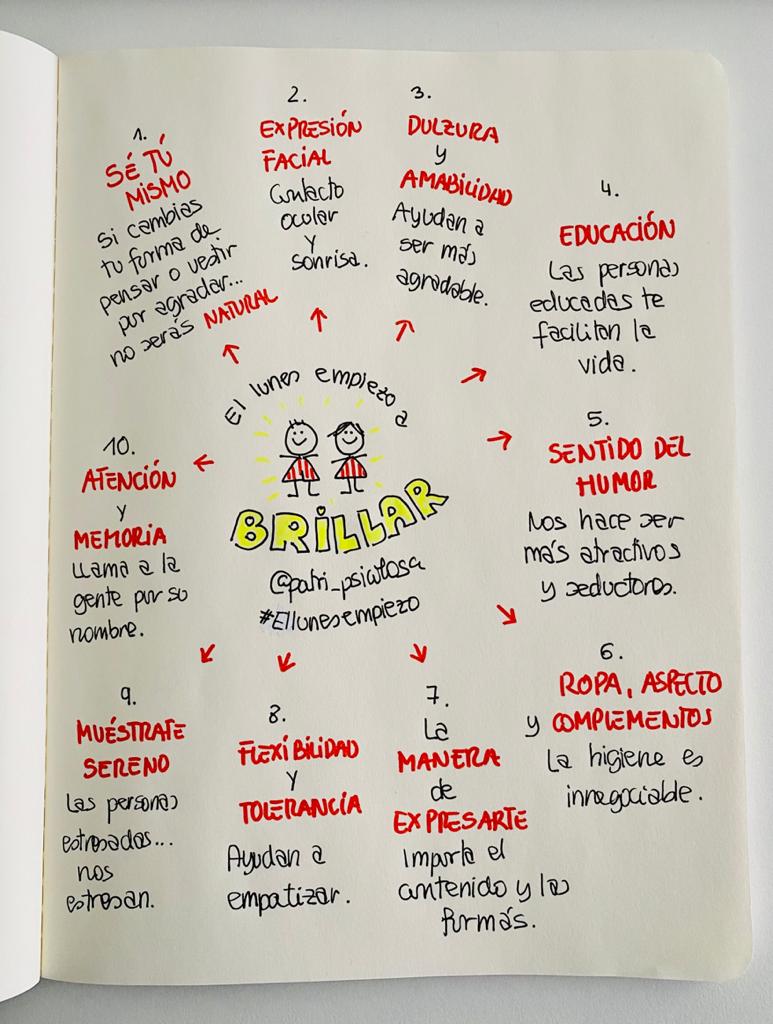 1.
SÉ TÚ
MISMO
Si cambias
tu forma de
pensar o vestir
por agradar...
no serás NATURAL
2.
EXPRESIÓN
FACIAL
Contacto
ocular
y
sonrisa.
3.
DULZURA
y
AMABILIDAD
Ayudan a
ser más
agradable.
4.
EDUCACIÓN
Las personas
educadas te
facilitan la
vida.
5.
SENTIDO DEL
HUMOR
Nos hace ser
más atractivos
y seductores.
6.
ROPA, ASPECTO
y COMPLEMENTOS
La higiene es
innegociable.
7.
La
MANERA
de
EXPRESARTE
Importa el
contenido y las
formás.
8.
FLEXIBILIDAD
Y
TOLERANCÍA
Ayudan a
empatizar.
9.
MUÉSTRATE
SERENO
Las personas
estresadas...
nos
estresan.
10.
ATENCIÓN
y
MEMORIA
LLama a la
gente por su
nombre.
El lunes empiezo a
BRILLAR
@patri_psicólosa
#Ellunesempiezo